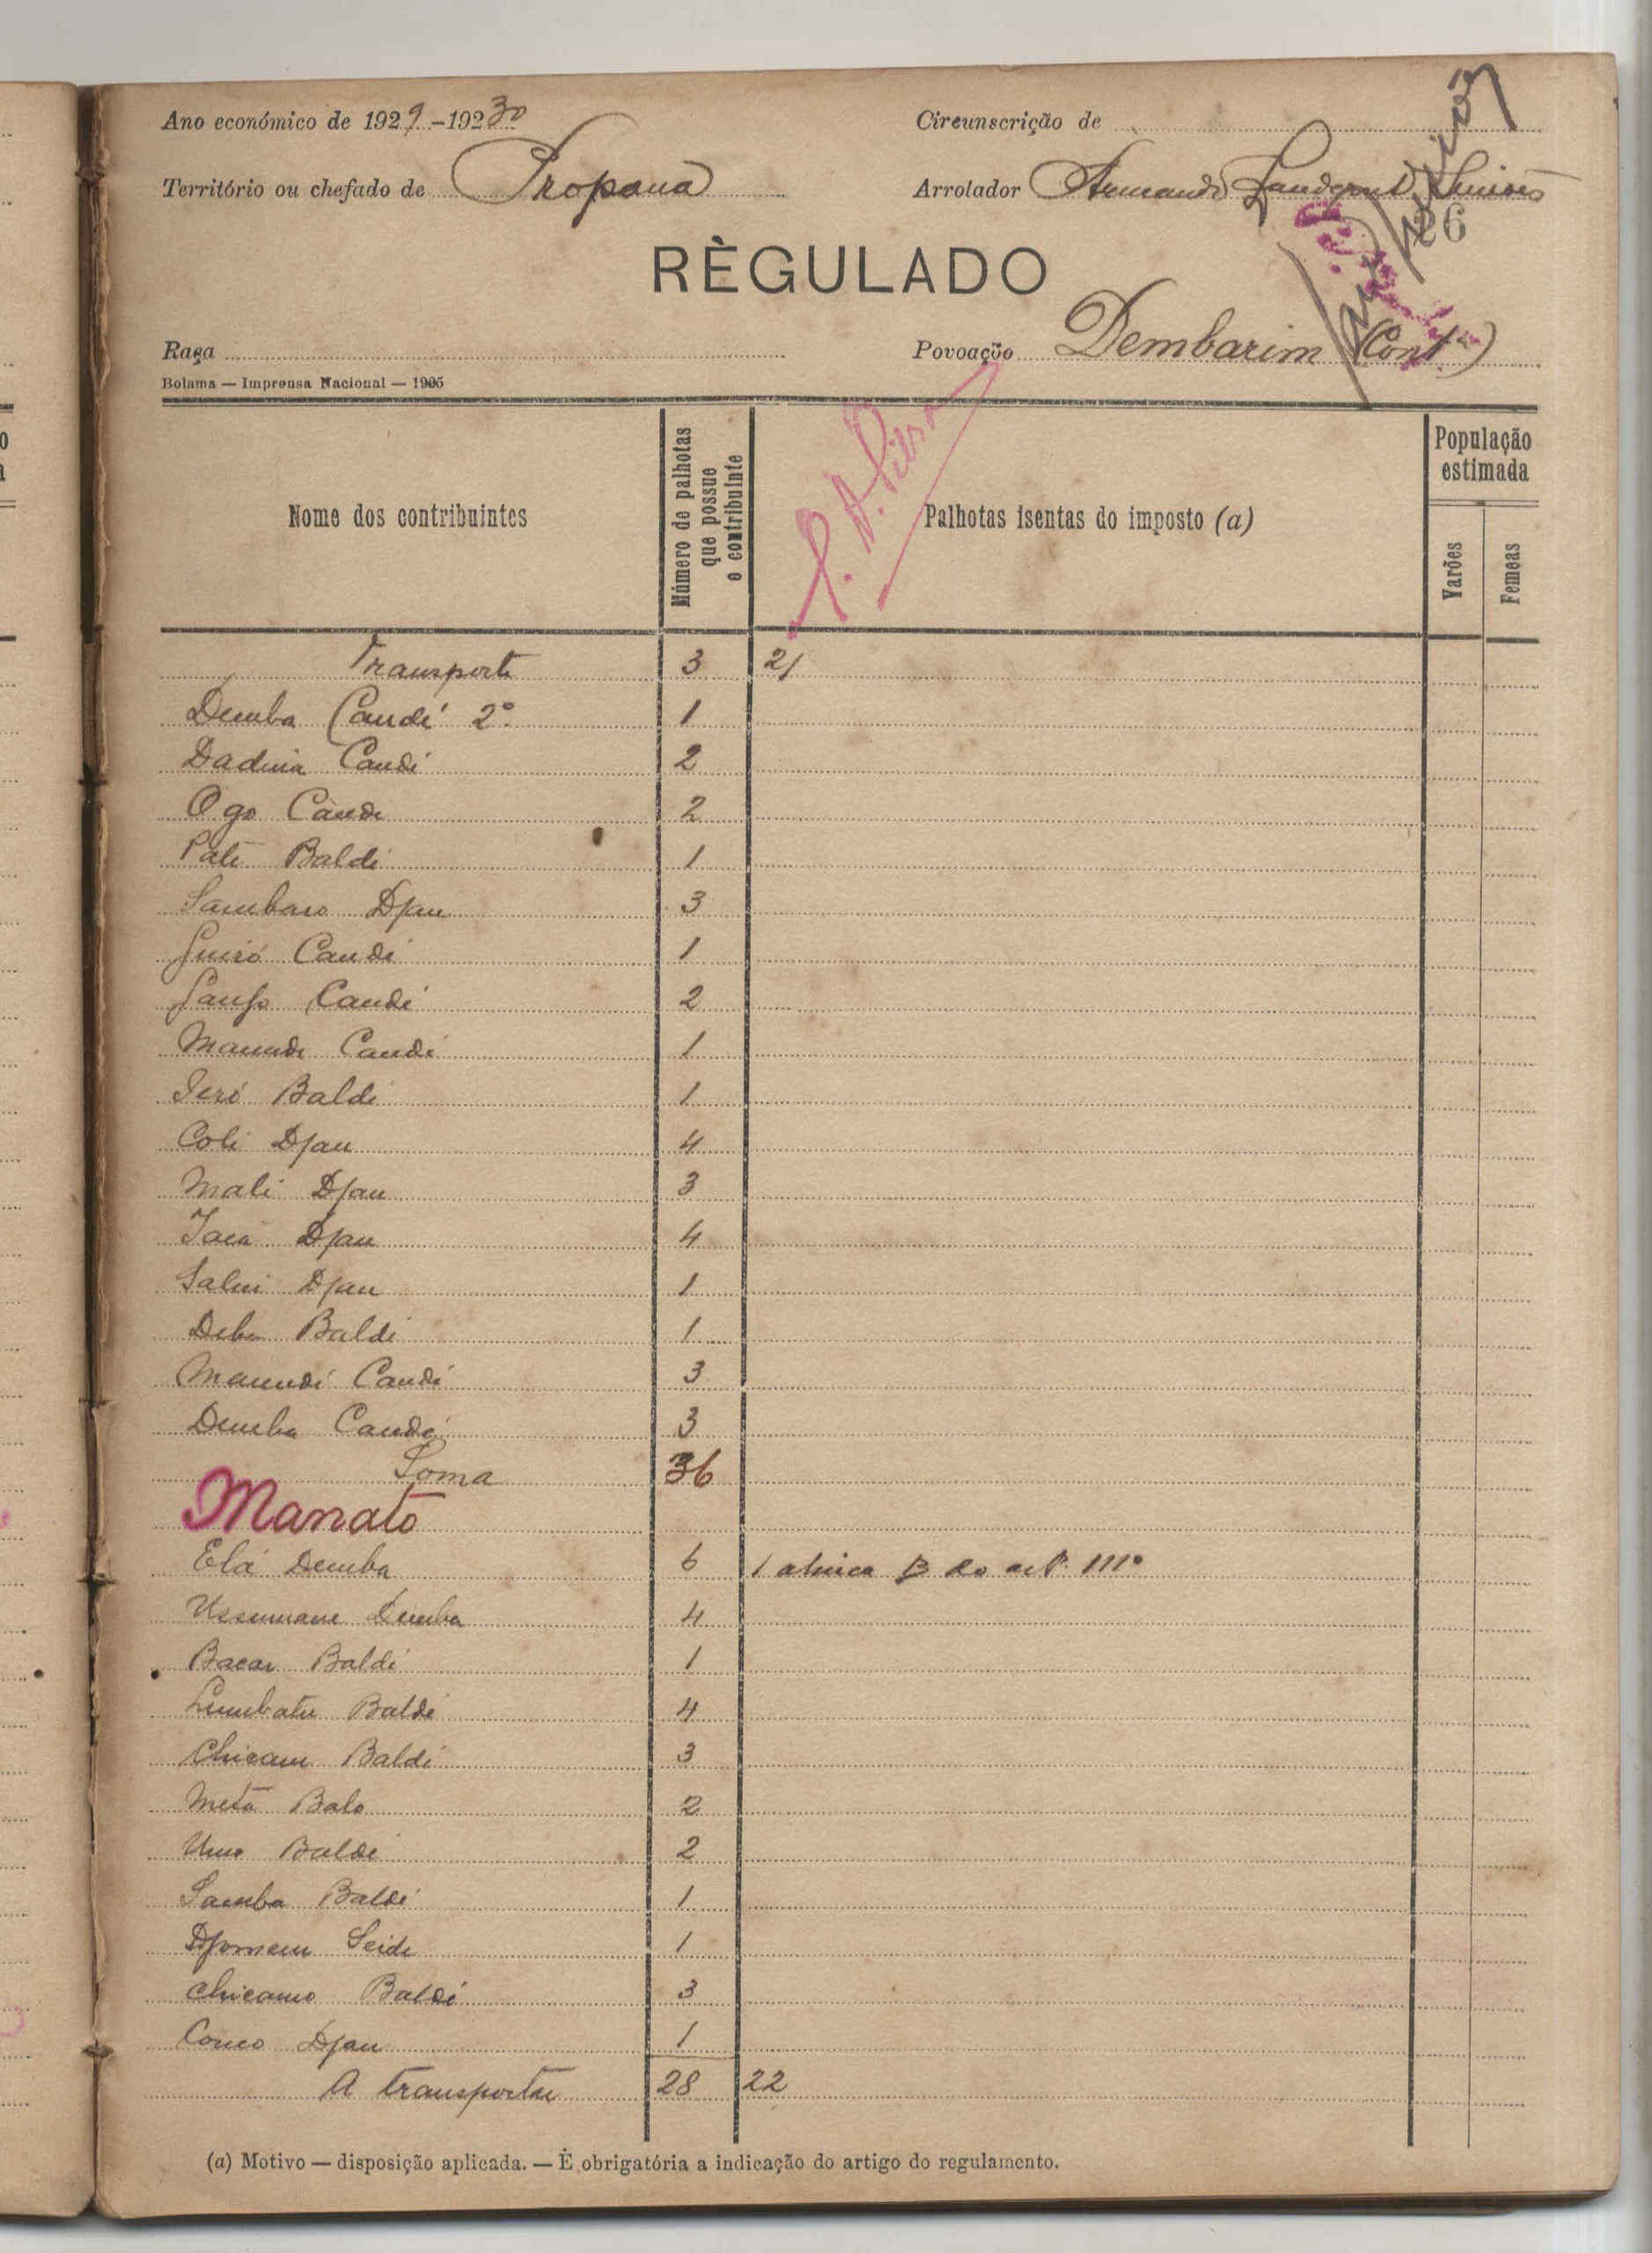 Ano económico de 1929-1930
Circunscrição de
Território ou chefado de Propana
Arrolador Armando
26
RÈGULADO
Raça
Povoação Dembarim (Cont.ª)
Bolama — Imprensa Nacional — 1925
Nome dos contribuintes
Número de palhotas que possue o contribuinte
Palhotas isentas do imposto (a)
População estimada
Varões
Femeas
Transporte 3 21
Demba Candé 2º 1
Dadina Candé 2
Ogo Cande 2
Pate Baldé 1
Sambaro Djau 3
Guiró Candé 1
Candé 2
Candé 1
Ieró Baldé 1
Coli Djau 4
Mali Djau 3
Iaia Djau 4
Djau 1
Baldé 1
Candé 3
Demba Candé 3
Soma 36
Manato
Elá Demba 6 1 alinea B do artº 111º
Ussumane Demba 4
Bacar Baldé 1
Baldé 4
Chicam Baldé 3
Meta Balo 2
Umo Baldé 2
Samba Baldé 1
Seide 1
Chicamo Baldé 3
Couco Djau 1
A transportar 28 22
(a) Motivo — disposição aplicada. — È obrigatória a indicação do artigo do regulamento.